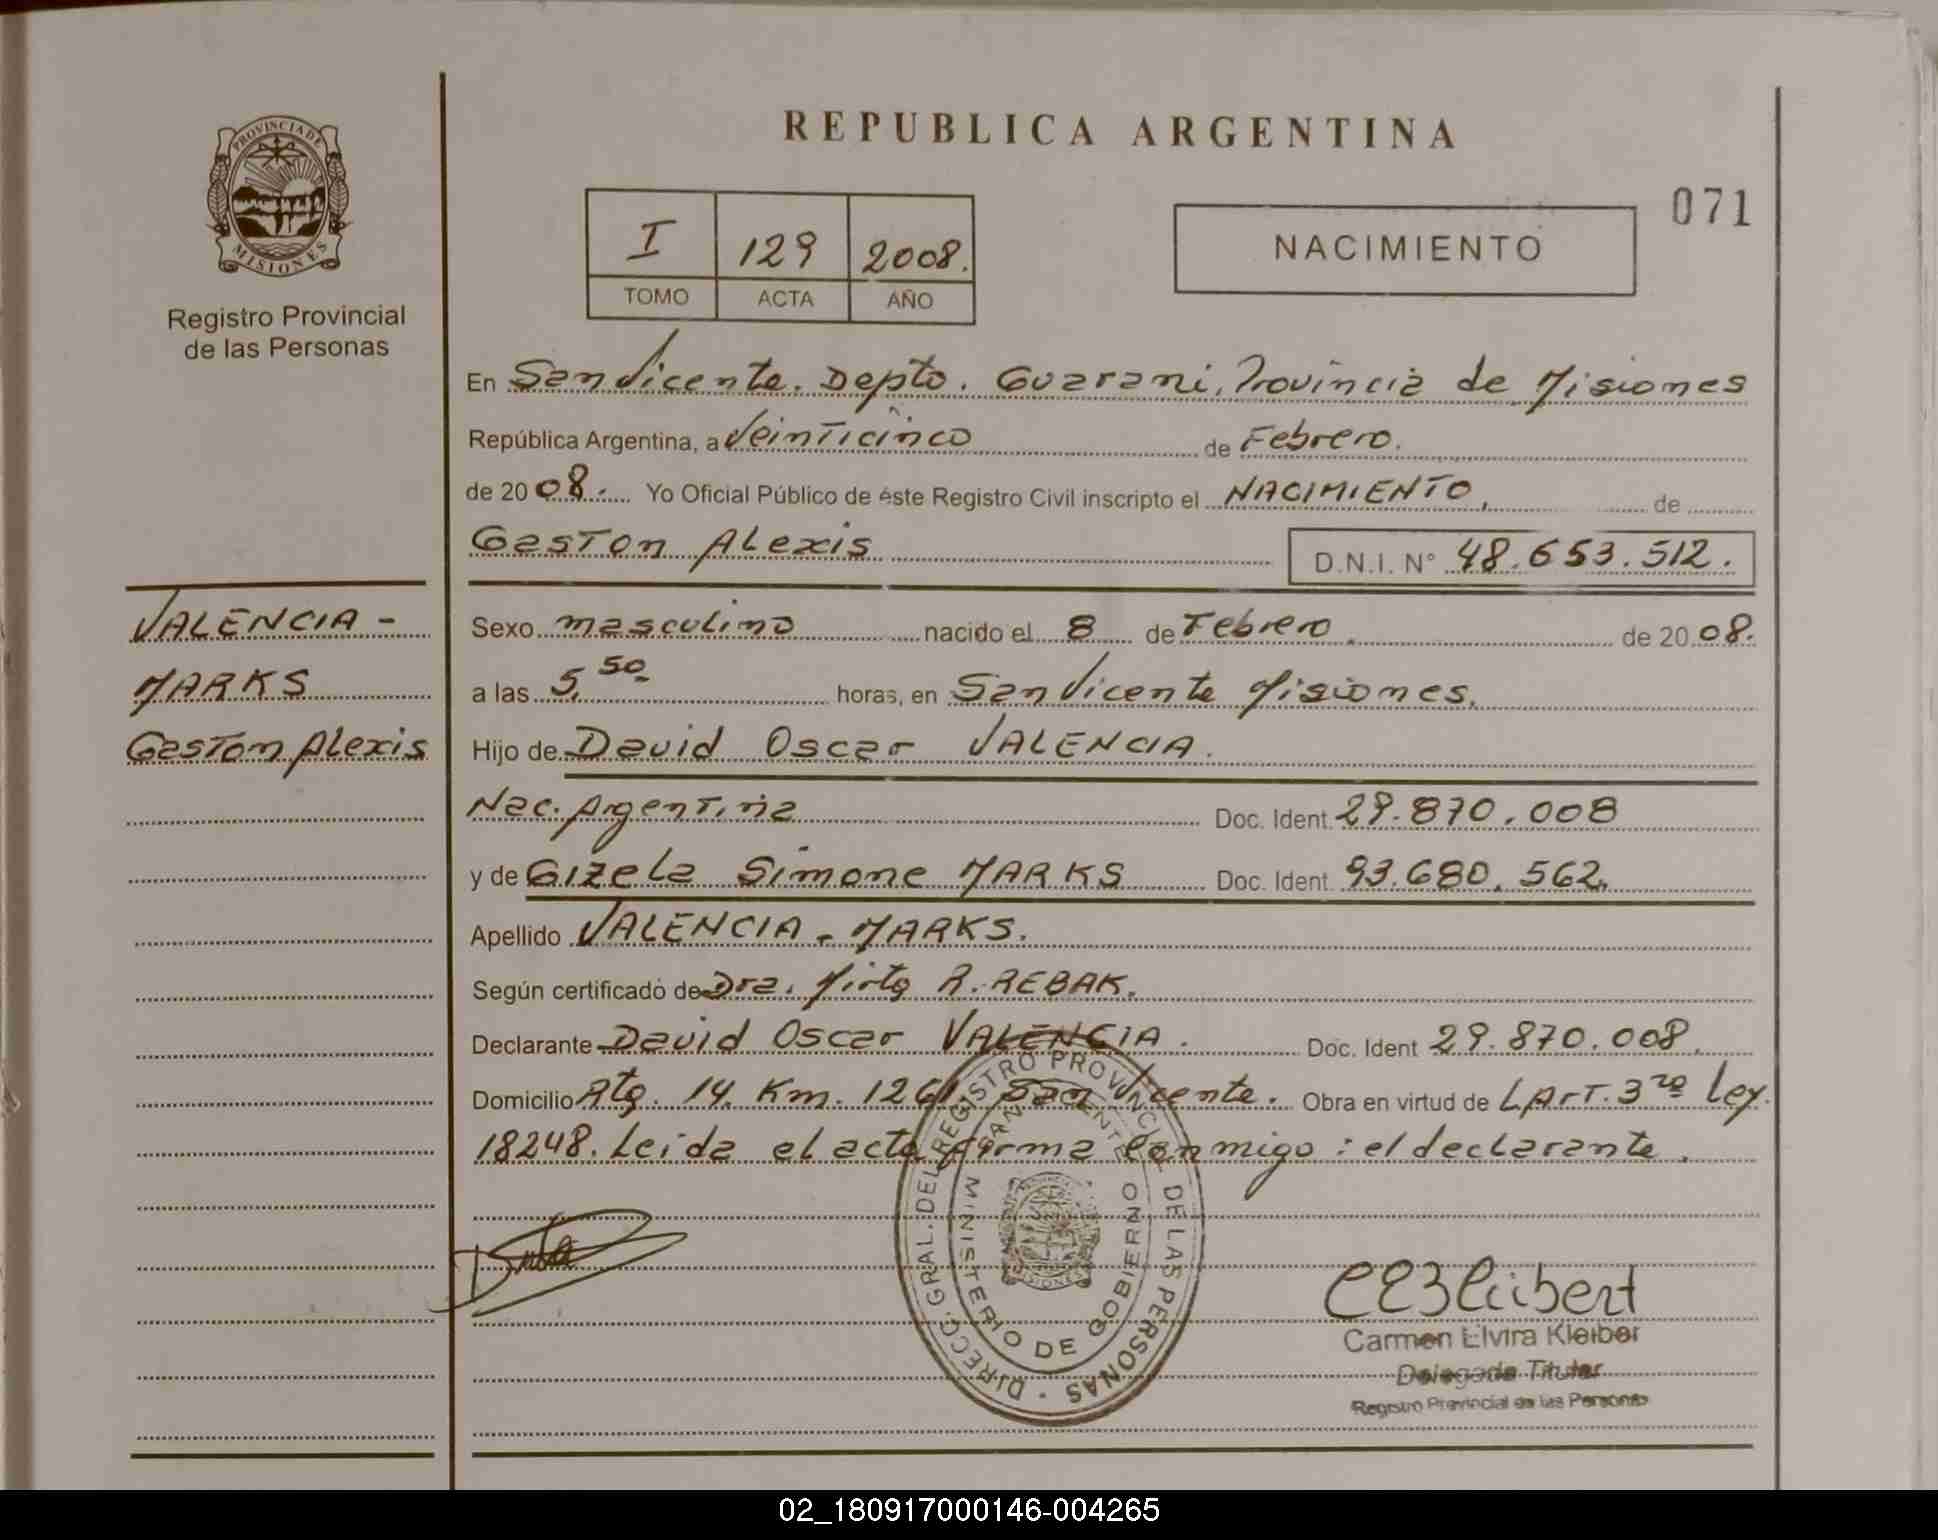 REPUBLICA ARGENTINA
PROVINCIA DE
MISIONES
Registro Provincial
de las Personas
I 129 2008.
TOMO ACTA AÑO
NACIMIENTO
071
En San Vicente. Depto. Guarani, Provincia de Misiones
República Argentina, a Veinticinco de Febrero.
de 2008.- Yo Oficial Público de éste Registro Civil inscripto el NACIMIENTO, de
Gaston Alexis D.N.I. N° 48.653.512.
VALENCIA -
MARKS
Gaston Alexis
Sexo masculino nacido el 8 de Febrero. de 2008.
a las 5,50 horas, en San Vicente Misiones.
Hijo de David Oscar VALENCIA.
Nac. Argentina Doc. Ident. 29.870.008
y de Gizela Simone MARKS Doc. Ident. 93.680.562.
Apellido VALENCIA - MARKS.
Según certificado de Dra. Mirta R. REBAK.
Declarante David Oscar VALENCIA. Doc. Ident 29.870.008.
Domicilio Rta. 14. Km. 1261. San Vicente. Obra en virtud de L Art. 3ro Ley.
18248. Leida el acta firma Conmigo: el declarante.
DIRECC. GRAL. DEL REGISTRO PROVINCIAL DE LAS PERSONAS
SAN VICENTE
MINISTERIO DE GOBIERNO
MISIONES
Carmen Elvira Kleiber
Delegada Titular
Registro Provincial de las Personas
02_180917000146-004265